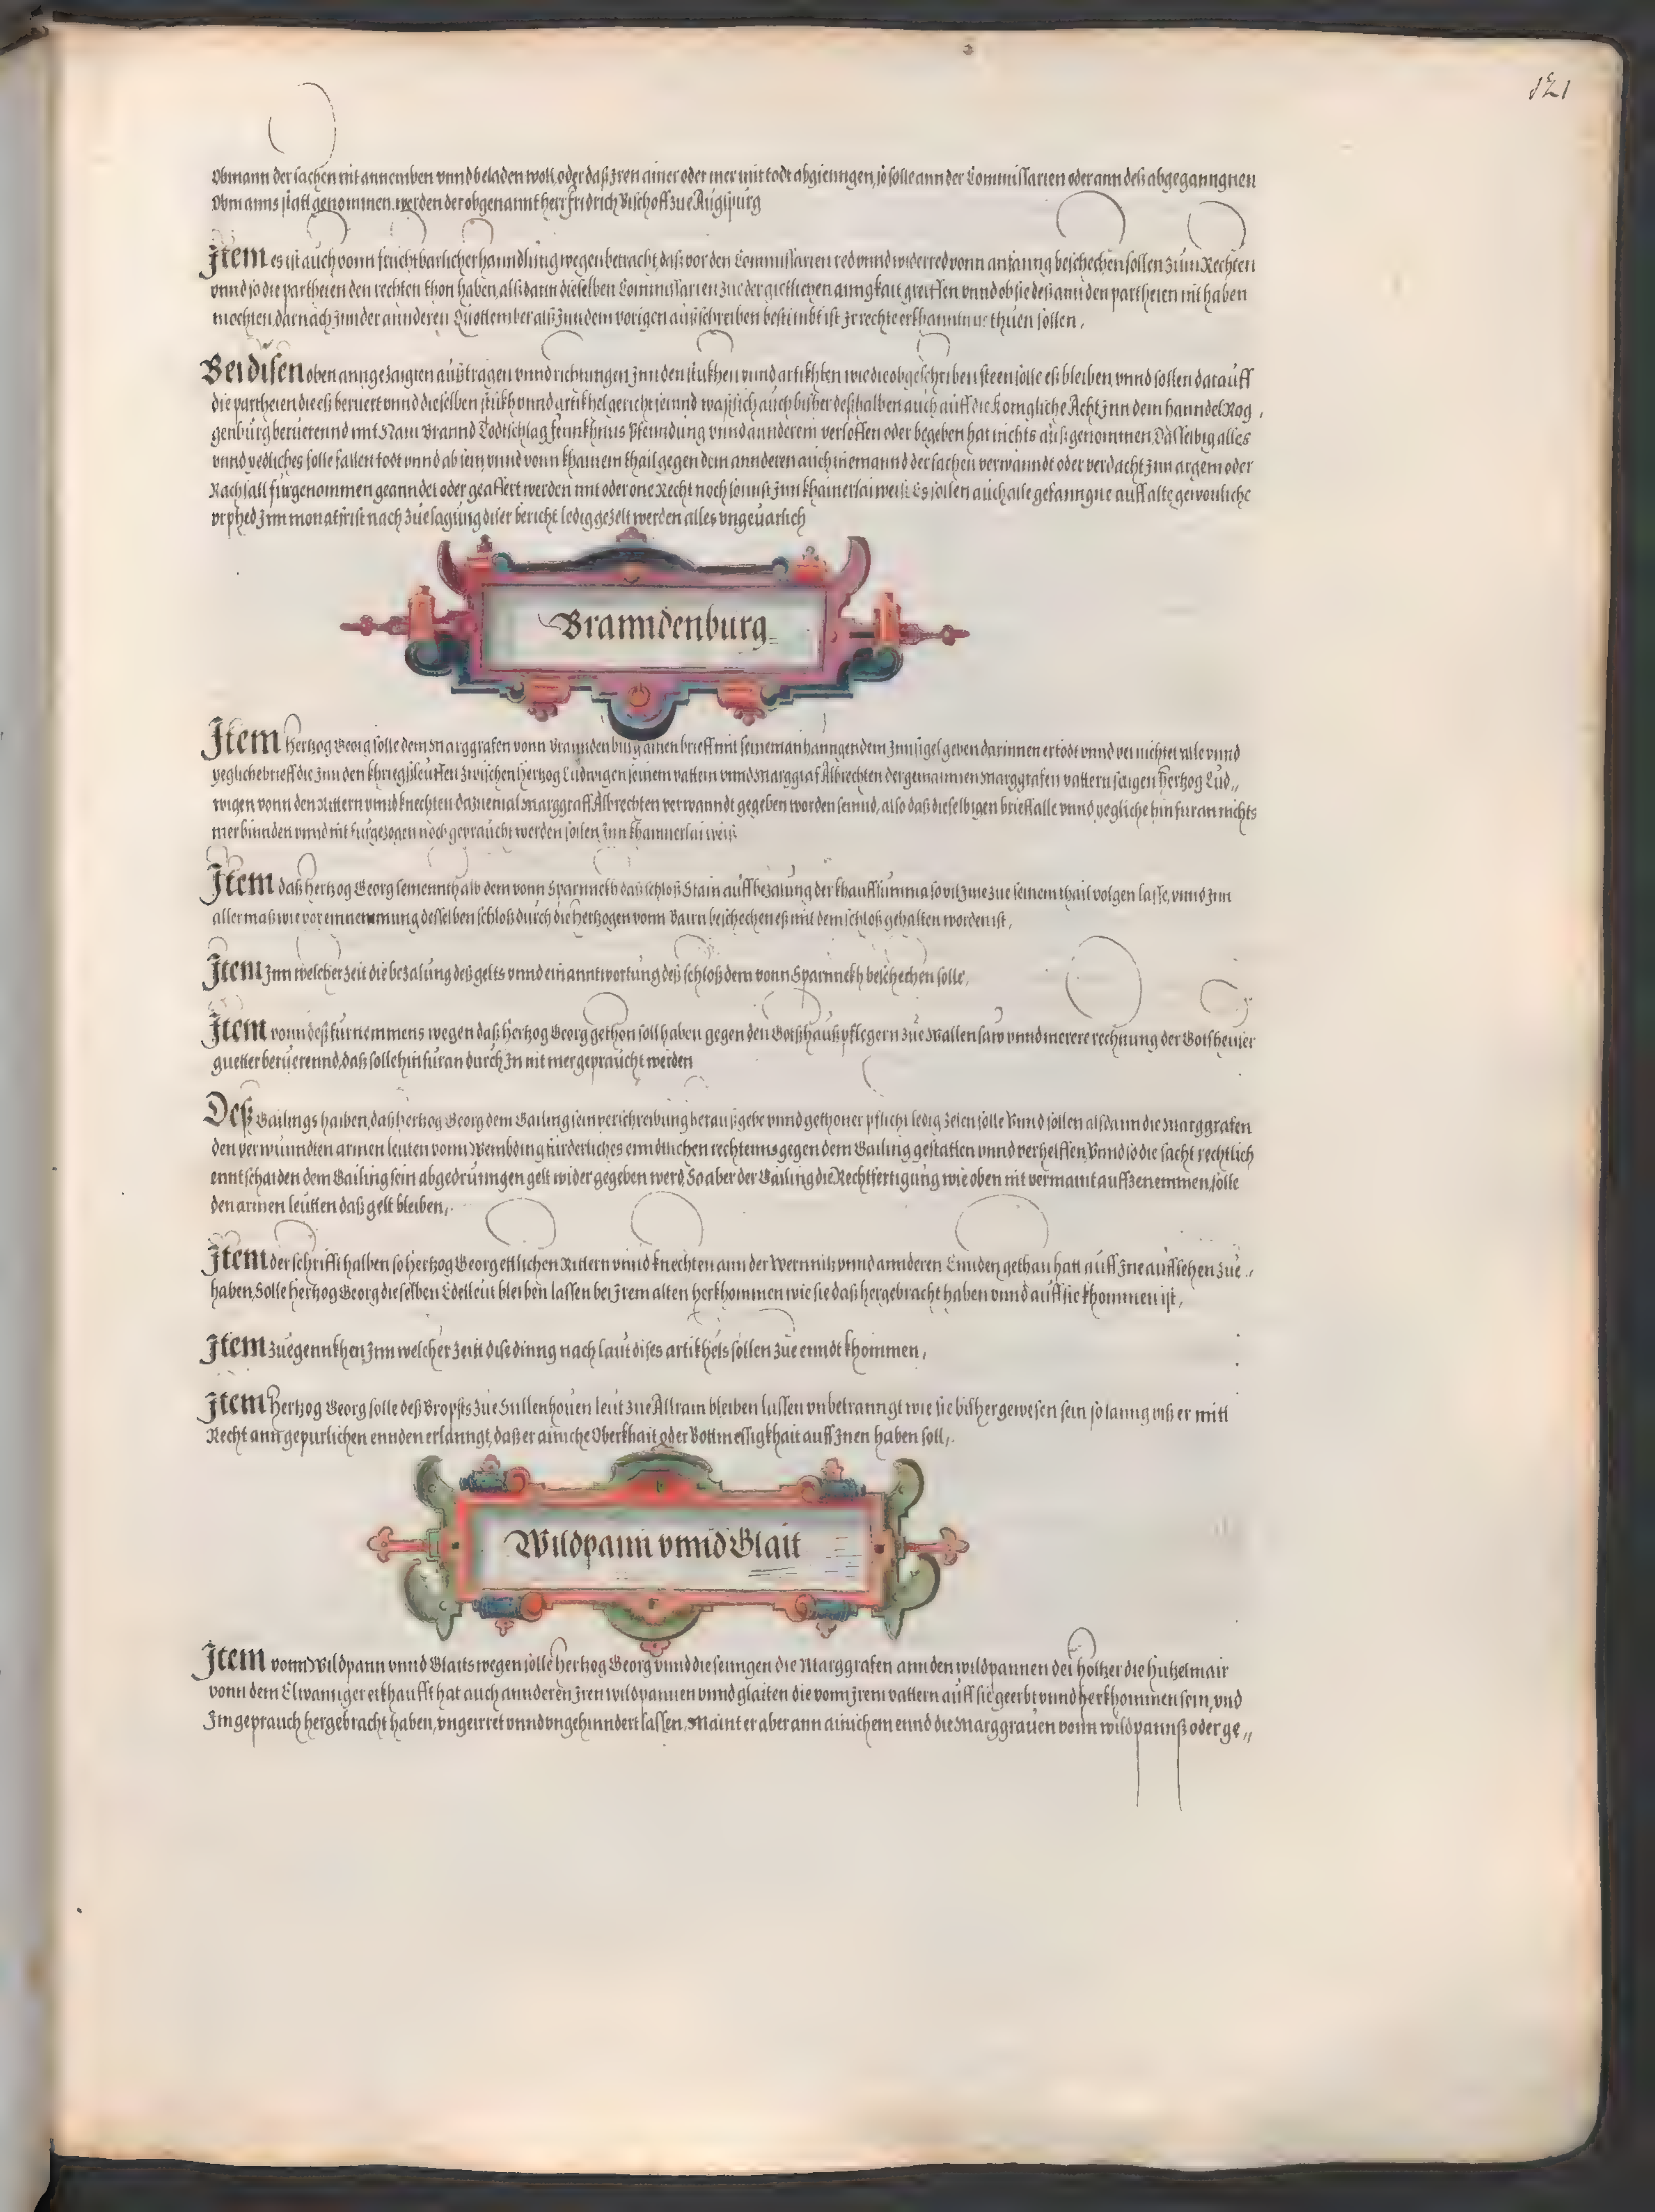 121
Obmann der sachen nit annemben vnnd beladen wolt, oder daß Jren ainer oder mer mit todt abgienngen, so solle ann der Commissarien oder ann deß abgeganngnen
Obmanns statt genommen werden der obgenannt herr fridrich Bischoff zue Augspurg
Jtem es ist auch vonn fruchtbarlicher hanndlung wegen betracht, daß vor den Commissarien red vnnd widerred vonn anfanng beschechen sollen zum Rechten
vnnd so die partheien den rechten thon haben, alßdann dieselben Commissarien zue der guetlichen ainngkait greiffen vnnd ob sie deß ann den partheien nit haben
mochten, darnach Jnn der annderen Quottember alß Jnn dem vorigen außschreiben bestimbt ist Jr rechterkhanntnus thuen sollen,
Bei disen oben anngezaigten außtragen vnnd richtungen Jnn den stukhen vnnd artikhlen wie die obgeschriben steen solle eß bleiben, vnnd sollen darauff
die partheien die eß beruert vnnd dieselben stukh vnnd artikhel gericht seinnd waß sich auch bisher deßhalben auch auff die Konngliche Acht Jnn dem hanndel Rog,
genburg beruerennd mit Nam Brannd Todtschlag fennkhnus Pfenndung vnnd annderem verloffen oder begeben hat nichts außgenommen, Dasselbig alles
vnnd yedliches solle fallen todt vnnd ab sein, vnnd vonn khainem thail gegen dem annderen auch niemannd der sachen verwanndt oder verdacht Jnn argem oder
Rachsall furgenommen geanndet oder geaffert werden mit oder one Recht noch sonnst Jnn khainerlai weiß Es sollen auch alle gefanngne auff alte gewonliche
vrphed Jnn monatsfrist nach zuesagung diser bericht ledig gezelt werden alles vngeuarlich
Branndenburg
Jtem Hertzog Georg solle dem Marggrafen vonn Branndenburg ainen brieff mit seinem anhanngendem Jnnsigel geben darinnen ertodt vnnd vernichtet alle vnnd
yegliche brieff die Jnn den khriegßleuffen zwischen Hertzog Ludwigen seinem vattern vnnd Marggraf Albrechten der genannnen Marggrafen vattern seligen Hertzog Lud,,
wigen vonn den Rittern vnnd knechten dazuemal Marggraff Albrechten verwanndt gegeben worden seinnd, also daß dieselbigen brieff alle vnnd yegliche hinfuran nichts
mer binnden vnnd nit furgezogen noch gepraucht werden sollen Jnn khainnerlai weiß
Jtem daß Hertzog Georg seinennthalb dem vonn Sparnnekh daß schloß Stain auff bezalung der khauffsumma so vil Jme zue seinem thail volgen lasse, vnnd Jnn
aller maß wie vor einnemmung desselben schloß durch die Hertzogen vonn Bairn beschechen eß mit dem schloß gehalten worden ist,
Jtem Jnn welcher zeit die bezalung deß gelts vnnd einanntwortung deß schloß dem vonn Sparnnekh beschechen solle,
Jtem vonn deß furnemmens wegen daß Hertzog Georg gethon soll haben gegen den Gotßhauß pflegern zue Wallensaw vnnd merere rechnung der Gotßheuser
guetter beruerennd, daß solle hinfuran durch Jn nit mer gepraucht werden
Deß Gailings halben, daß hertzog Georg dem Gailing sein verschreibung heraußgebe vnnd gethoner pflicht ledig zelen solle Vnnd sollen alsdann die Marggrafen
den verwundten armen leuten vonn Wembding furderliches enndtlichen rechtenns gegen dem Gailing gestatten vnnd verhelffen, Vnnd so die sacht rechtlich
enntschaiden dem Gailing sein abgedrunngen gelt wider gegeben werd, So aber der Gailing die Rechtfertigung wie oben nit vermaint auffzenemmen, solle
den armen leutten daß gelt bleiben,
Jtem der schrifft halben so Hertzog Georg ettlichen Rittern vnnd knechten ann der Wernnitz vnnd annderen Ennden gethan hatt auff Jne auffsehen zue
haben, Solle hertzog Georg dieselben Edelleut bleiben lassen bei Jrem alten herkhommen wie sie daß hergebracht haben vnnd auff sie khommen ist,
Jtem zuegennkhen Jnn welcher zeitt dise dinng nach laut dises artikhels sollen zue enndt khommen,
Jtem Hertzog Georg solle deß Bropsts zue Sullenhouen leut zue Altram bleiben lassen vnbetranngt wie sie bißher gewesen sein so lanng biß er mitt
Recht ann gepurlichen ennden erlanngt, daß er ainiche Oberkhait oder Bottmessigkhait auff Jnen haben soll,
Wildpann vnnd Glait
Jtem vonn Wildpann vnnd Glaits wegen solle Hertzog Georg vnnd die seinngen die Marggrafen ann den wildpannen der höltzer die Hutzelmair
vonn dem Elwannger erkhaufft hat auch annderen Jren wildpannen vnnd glaiten die vonn Jrem vattern auff sie geerbt vnnd herkhommen sein, vnd
Jm geprauch hergebracht haben, vngeirret vnnd vngehinndert lassen, Maint er aber ann ainichem ennd die Marggrauen vonn wildpannß oder ge,,